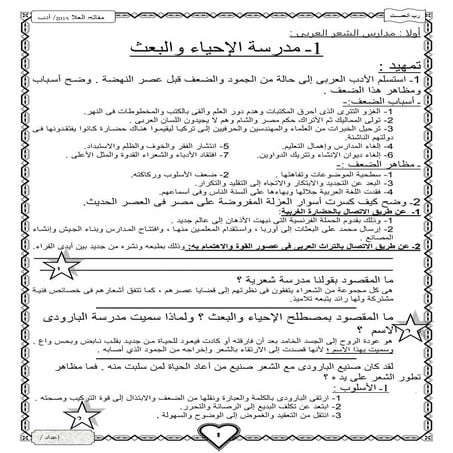 رب العصــت
مفاتيح العلا 2015/ أدب
أولا : مدارس الشعر العربى :
1- مدرسة الإحياء والبعث
تمهيد :
1- استسلم الأدب العربى إلى حالة من الجمود والضعف قبل عصر النهضة . وضح أسباب
ومظاهر هذا الضعف .
- أسباب الضعف:-
1- الغزو التترى الذى أحرق المكتبات وهدم دور العلم وألقى بالكتب والمخطوطات فى النهر.
2- تولى المماليك ثم الأتراك حكم مصر والشام وهم لا يجيدون اللسان العربى .
3- ترحيل الخبرات من العلماء والمهندسين والحرفيين إلى تركيا ليقيموا هناك حضارة كانوا يفتقدونها فى
دولتهم الناشئة.
4- إلغاء المدارس وإهمال التعليم. 5- انتشار الفقر والخوف والظلم والاستبداد.
6- إلغاء ديوان الإنشاء وتتريك الدواوين. 7- افتقاد الأدباء والشعراء القدوة والمثل الأعلى .
- مظاهر الضعف :-
1- سطحية الموضوعات وتفاهتها . 2- ضعف الأسلوب وركاكته.
3- البعد عن التجديد والابتكار والاتجاه إلى التقليد والتكرار.
4- فقدت اللغة العربية جلالها وبهاءها على ألسنة الناس وفى أسماعهم.
2- وضح كيف كسرت أسوار العزلة المفروضة على مصر فى العصر الحديث.
1- عن طريق الاتصال بالحضارة الغربية:
1- وذلك بقدوم الحملة الفرنسية التى نبهت الأذهان إلى عالم جديد .
2- إرسال محمد على البعثات إلى أوربا ، واستقدام المعلمين منها ، وافتتاح المدارس وبناء الجيش وإنشاء
المصانع .
2- عن طريق الاتصال بالتراث العربى فى عصور القوة والاهتمام به: وذلك بطبعه ونشره من جديد بين أيدى القراء.
1
ما المقصود بقولنا مدرسة شعرية ؟
هى كل مجموعة من الشعراء يتفقون فى نظرتهم إلى قضايا عصرهم ، كما تتفق أشعارهم فى خصائص فنية
مشتركة ولها رائد يتبعه تلاميذ.
ما المقصود بمصطلح الإحياء والبعث ؟ ولماذا سميت مدرسة البارودى بهذا
الاسم ؟
هو عودة الروح إلى الجسد الخامد بعد أن فارقته أو كادت فيعود للحياة من جديد بقلب نابض وبحس واع .
وسميت بهذا الاسم ؛ لأنها قصدت إلى الارتقاء بالشعر وإخراجه من الجمود الذى أصابه .
لقد كان صنيع البارودى مع الشعر صنيع من أعاد الحياة لمن سلبت منه . فما مظاهر
تطور الشعر على يده ؟
1- الأسلوب :
1- ارتقى البارودى بالكلمة والعبارة ونقلها من الضعف والابتذال إلى قوة التركيب وصحته .
2- ابتعد عن تكلف البديع إلى الرصانة والتحرر.
3- انتقل من التعقيد والغموض إلى الوضوح والسهولة .
إعداد /
1